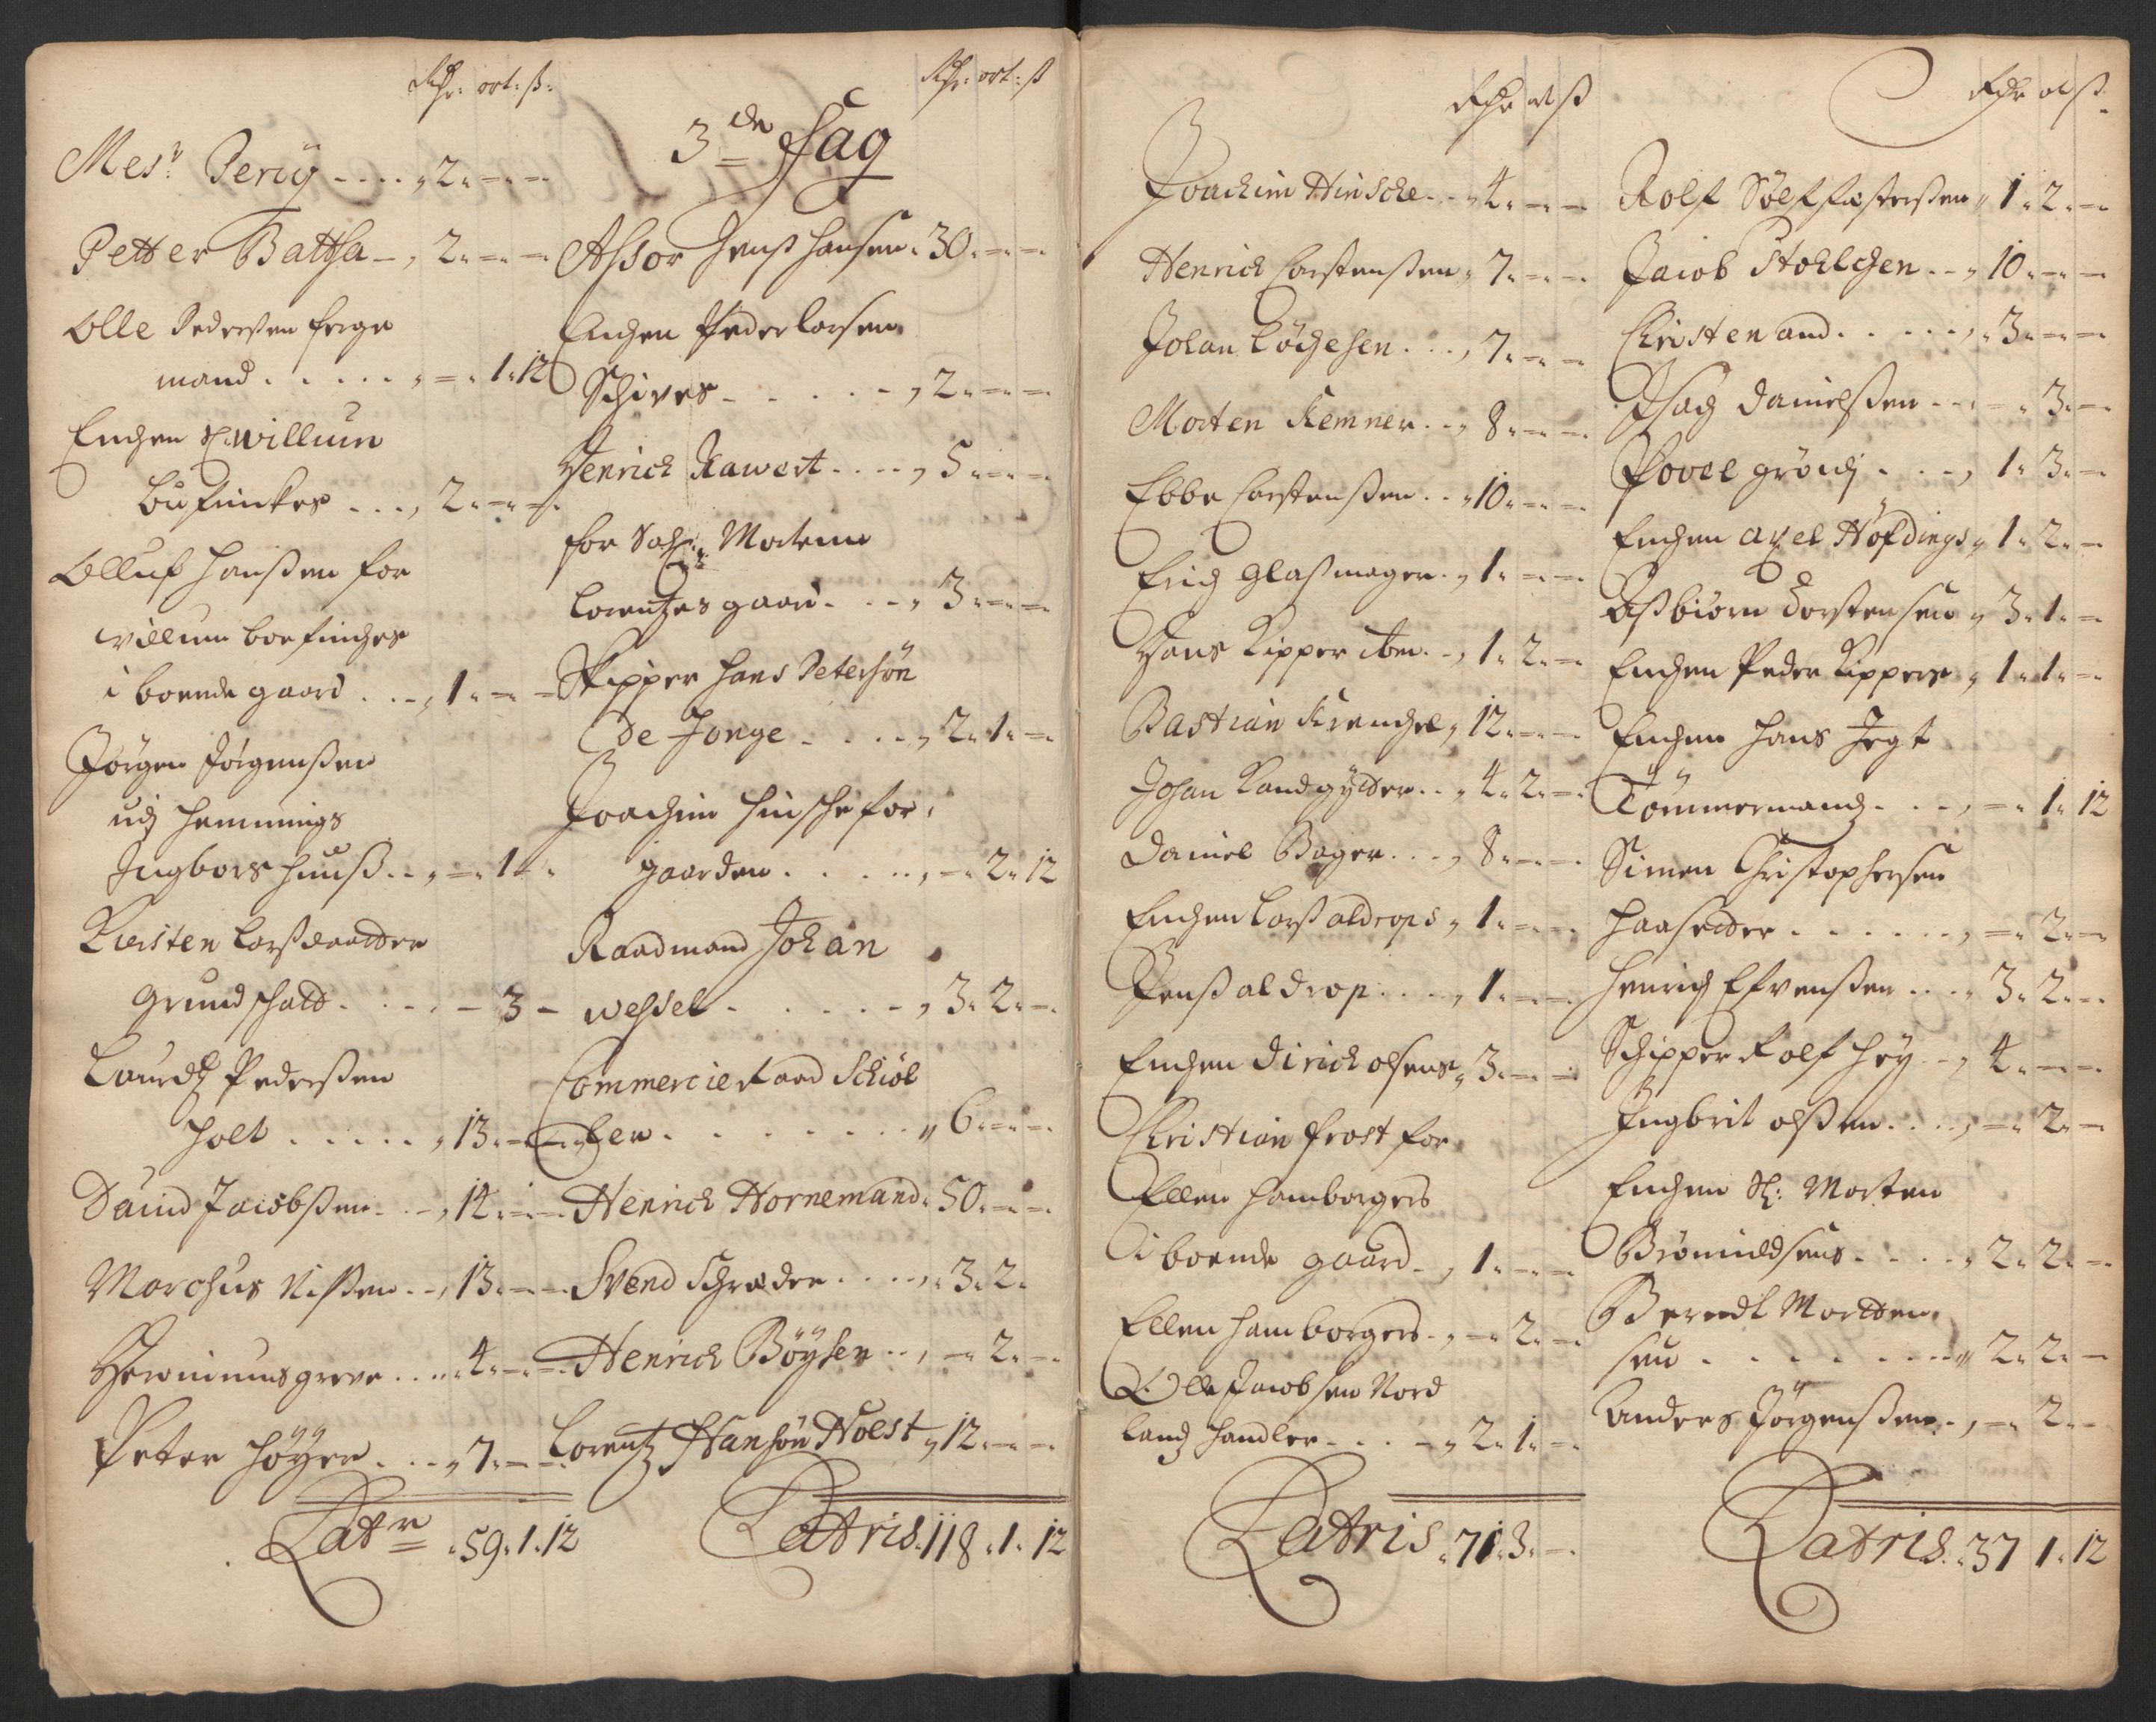 Rdr: ort: ß:
Mesr: Percÿ .... 2. - -
Petter Battha - 2. - -
Olle Pedersen ferge
mand ..... - 1. 12
Enchen Sl: Willum
Bufinckes ... 2. - -
Olluf Hanßen for
Willum boefinches
i boende gaard ... 1. - -
Jörgen Jörgenßen
udj Hemmings
Ingbors huuß .. - 1. -
Kiersten Larßdaatter
Grundschatt .... - 3 -
Lauridz Pederßen
Holt ..... 13. - -
David Jacobßen .. 14. - -
Marchus Nißen .. 13. - -
Hieronimus greve .... 4. - -
Peter Höÿer ... 7. - -
Latr 59. 1. 12
Rdr: ort: ß
3de Sag
Assor Jenß Hansen. 30. - -
Enchen Peder Larsen
Schives ..... 2. - -
Henrich Kawert .... 5. - -
for Sal: Morten
Lorentzes gaard ... 3. - -
Skipper Hans Petersön
De Jonge ..... 2. 1. -
Joachim Hinsche for
gaarden ..... - 2. 12
Raadmand Johan
Wessel ...... 3. 2. -
Commercie Raad Schiöl
ler ........ 6. - -
Henrich Hornemand. 50. - -
Svend Schrøder .... 3. 2.
Henrich Böÿsen .. - 2. -
Lorentz Hansön Holst 12. - -
Latris. 118. 1. 12
Rdr ort ß
Joachim Hinsche .. 4. - -
Henrich Carstenßen 7. - -
Johan Löchesen ... 7. - -
Morten Kemner .. 8. - -
Ebbe Carstenßen .. 10. - -
Erich Glaßmager .. 1. - -
Hans Kipper iben. - 1. 2. -
Bastian Krenchel 12. - -
Johan Randgÿtter .. 4. 2. -
Daniel Bager ... 8. - -
Enchen Larß aldrops 1. - -
Jenß aldrop .... 1. - -
Enchen Dirich olsens 3. - -
Christian Frost for
Ellen Hamborgers
i boende gaard - 1. - -
Ellen Hamborgers - - 2. -
Olle Jacobsen Nord
landz Handler .... 2. 1. -
Latris 71. 3. -
Rdr ort ß
Rolf Sölffæsterßen 1. 2. -
Jacob Stohlchen .. 10. - -
Christen and ..... 3. - -
Isach Danielßen ... - 3. -
Povel gröndj .... 1. 3. -
Enchen axel Höfdings 1. 2. -
Aßbiörn Torstensen 3. 1. -
Enchen Peder Kippers 1. 1. -
Enchen Hans Jegt
Tömmermandz ... - 1. 12
Simen Christophersen
Haasetter ...... - 2. -
Henrich Efvenßen ... 3. 2. -
Schipper Rolf Höy .. 4. - -
Ingbrit olßen .... - 2. -
Enchen Sl: Morten
Brömildsens ..... 2. 2. -
Berendt Mortten
sen ....... 2. 2. -
Anders Jörgenßen .. - 2. -
Latris. 37 1. 12